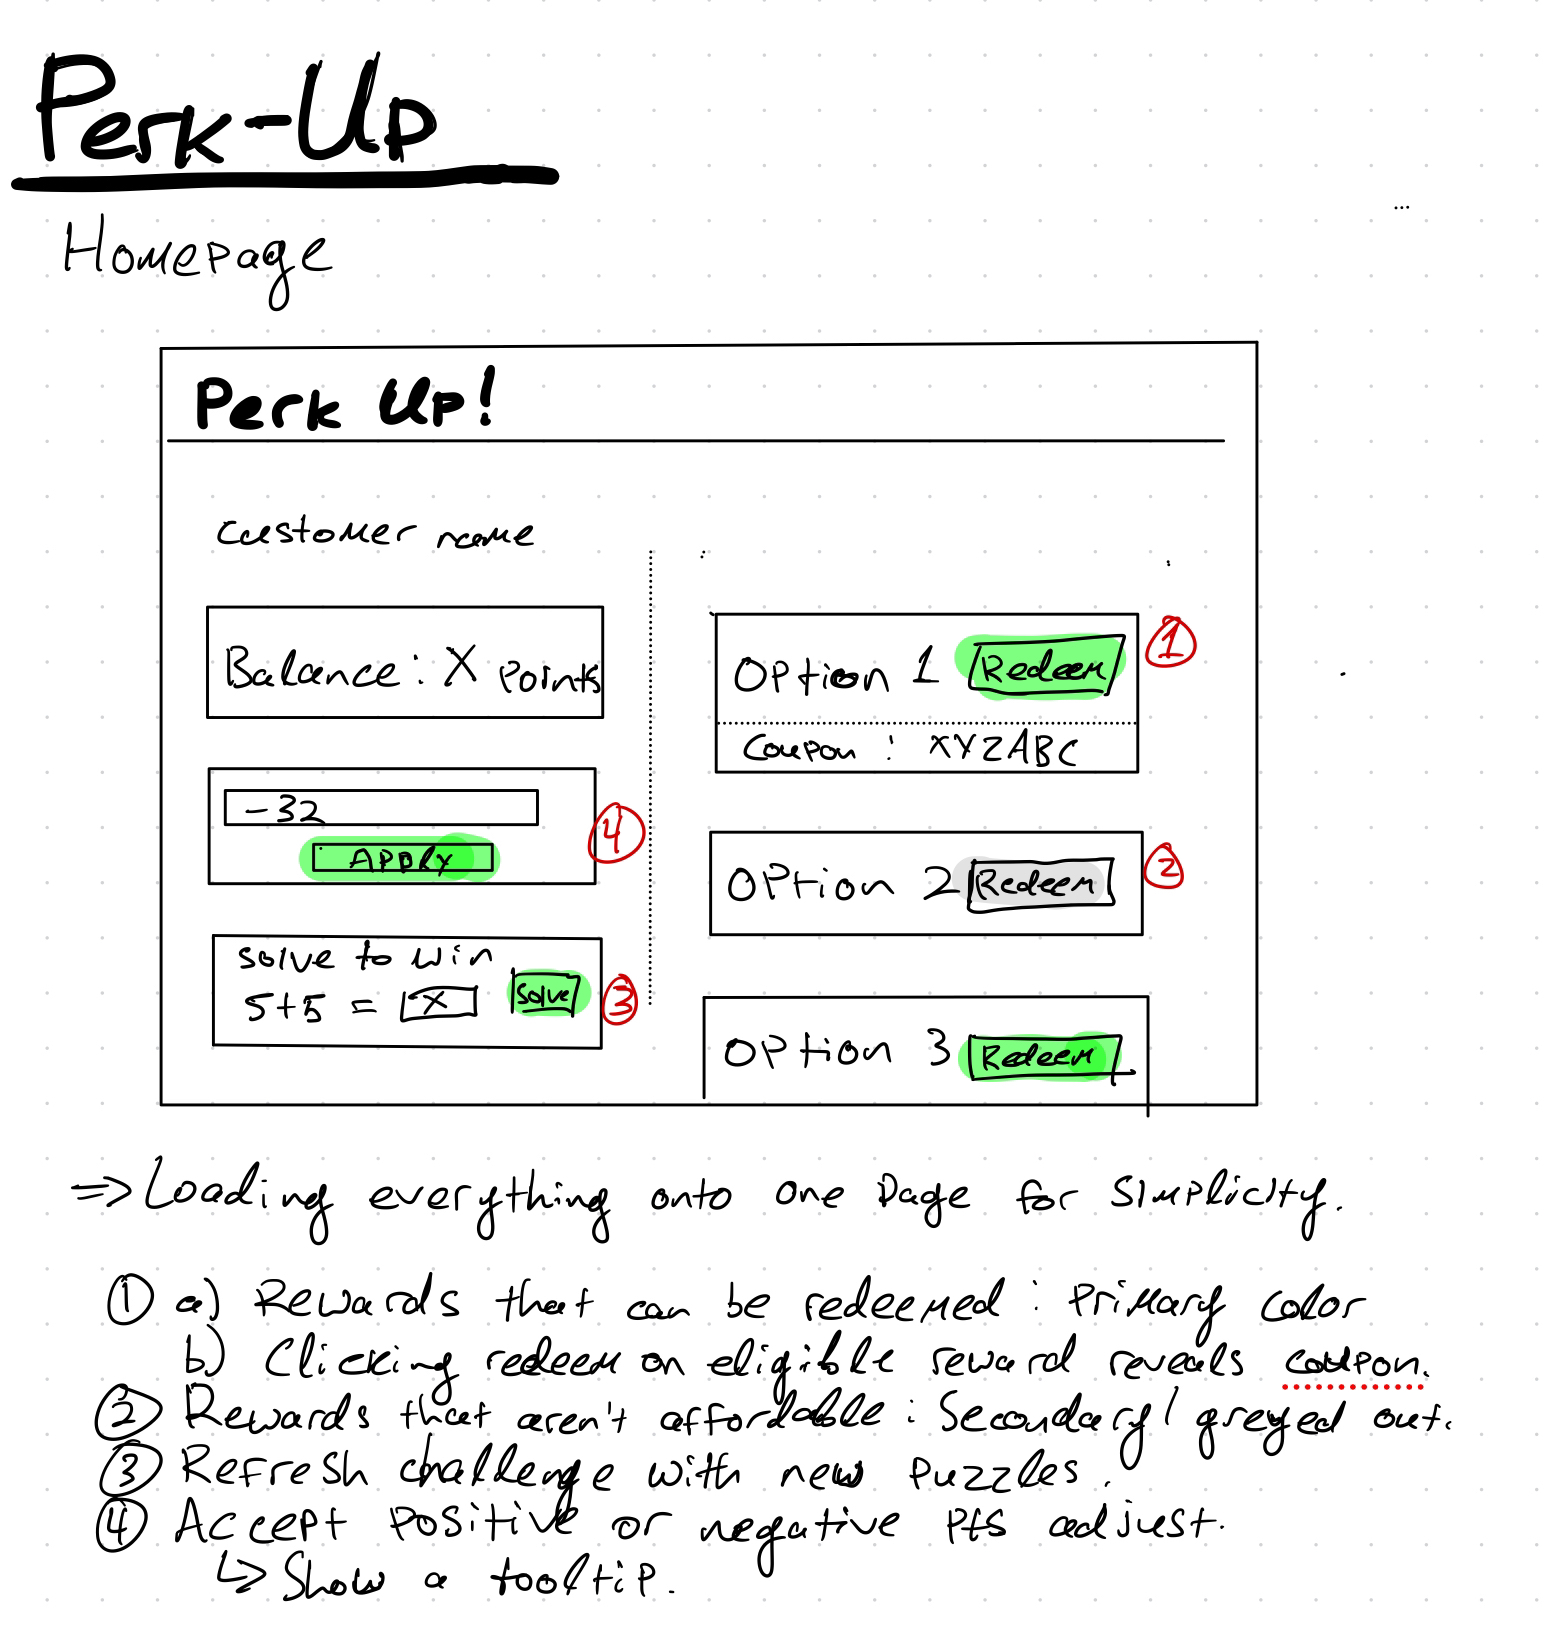 Perk-Up
Homepage
Perk Up!
Customer name
Balance: X points
-32
APPLY
4
solve to win
5+5 = X Solve
3
Option 1 Redeem
1
Coupon: XYZABC
Option 2 Redeem
2
Option 3 Redeem
=> Loading everything onto one page for simplicity.
1 a) Rewards that can be redeemed: primary color
b) Clicking redeem on eligible reward reveals coupon.
2 Rewards that aren't affordable: Secondary/greyed out.
3 Refresh challenge with new puzzles.
4 Accept positive or negative pts adjust.
↳ Show a tooltip.